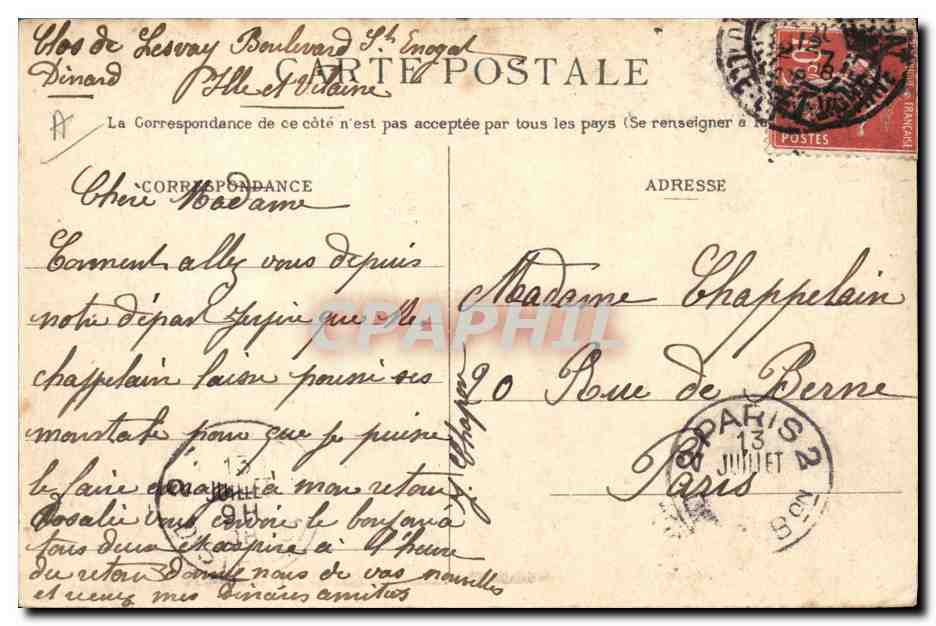 Clos de Lesvay Boulevard St Enogat
Dinard Ille et Vilaine
CARTE POSTALE
La Correspondance de ce côté n'est pas acceptée par tous les pays (Se renseigner à la
POSTES
FRANÇAISE
A
CORRESPONDANCE
ADRESSE
Chère Madame
Comment allez vous depuis
notre départ J'espire que Mr
chappelain laisse poussé ses
moustale pour que je puisse
le faire à mon retour
Rosalie vous envoie le bonjour à
tous deux et aspire à l'heure
du retour donne nous de vos nouvelles
et recevez mes amitiés
J. Chapon
Madame Chappelain
20 Rue de Berne
Paris
PARIS 2
13
JUILLET
Bon
13
JUILLET
9H
CPAPHIL